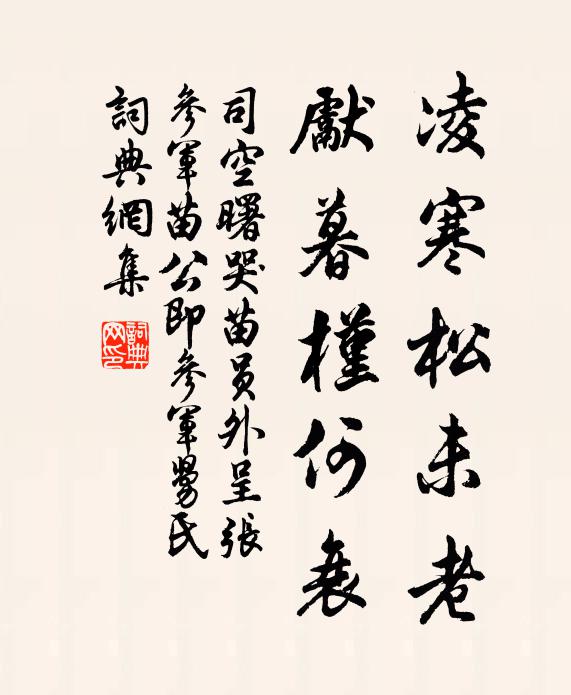 凌寒松未老
獻暮槿何衰
司空曙哭苗員外呈張
參軍苗公即參軍舅氏
詞典網集
詞典网印